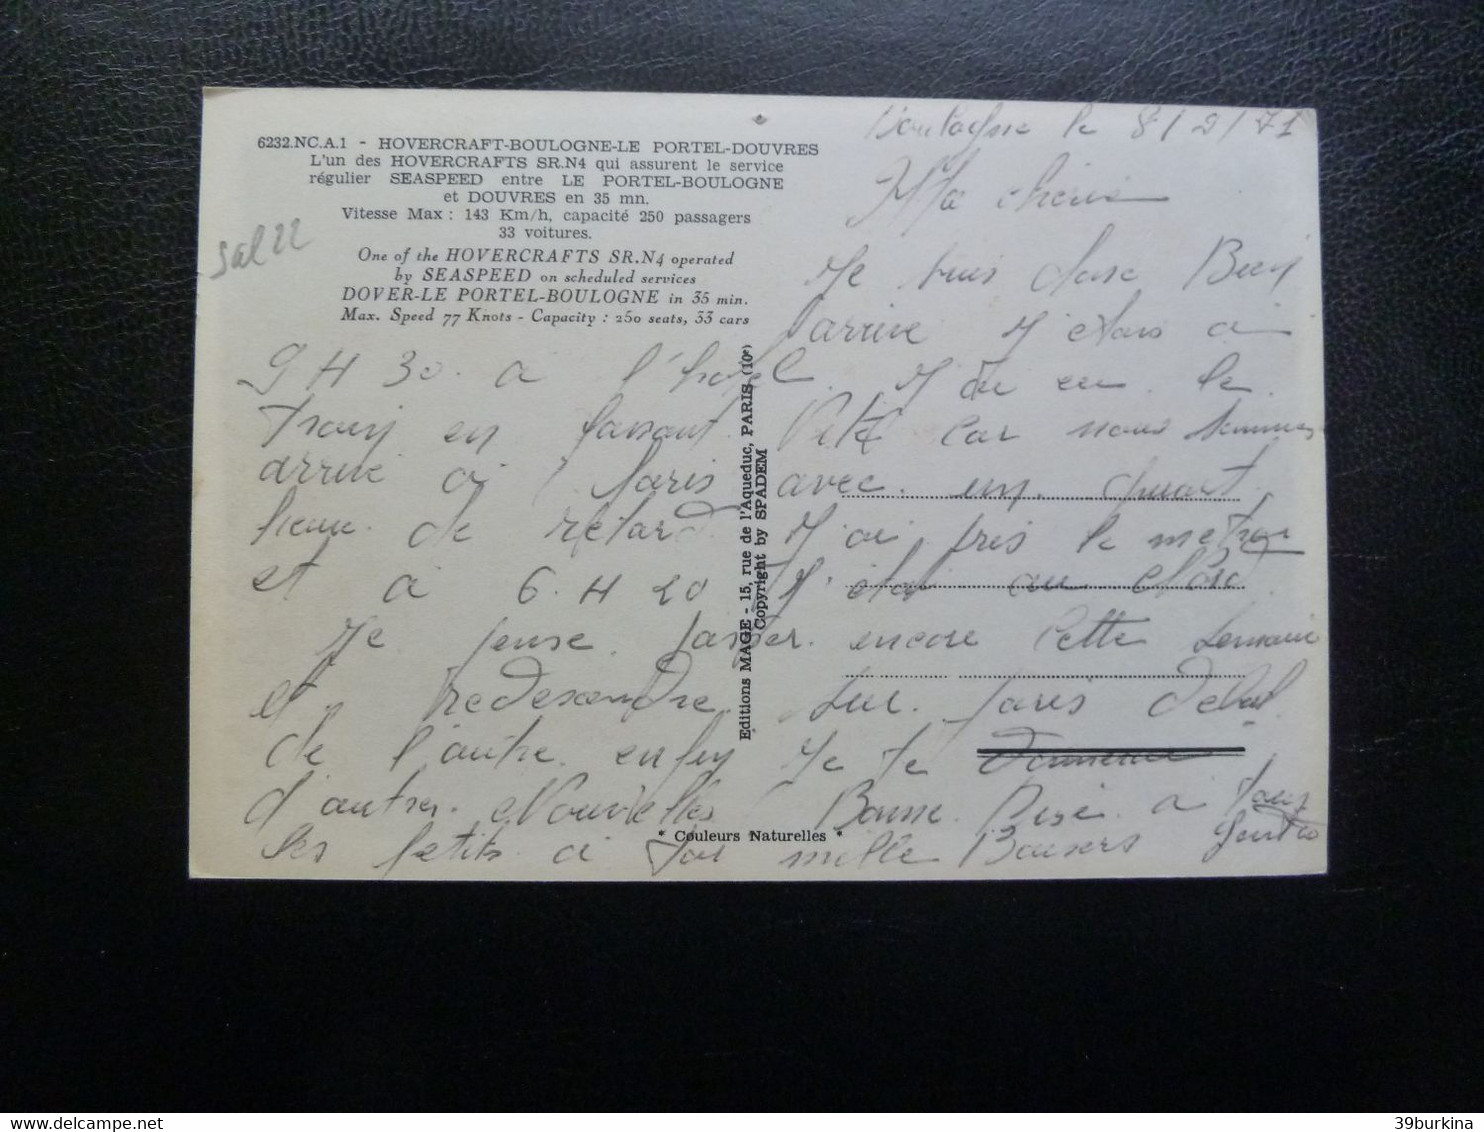 6232.NC.A.1 - HOVERCRAFT-BOULOGNE-LE PORTEL-DOUVRES
L'un des HOVERCRAFTS SR.N4 qui assurent le service
régulier SEASPEED entre LE PORTEL-BOULOGNE
et DOUVRES en 35 mn.
Vitesse Max : 143 Km/h, capacité 250 passagers
33 voitures.
One of the HOVERCRAFTS SR.N4 operated
by SEASPEED on scheduled services
DOVER-LE PORTEL-BOULOGNE in 35 min.
Max. Speed 77 Knots - Capacity : 250 seats, 33 cars
Sal 22
Editions MAGE - 15, rue de l'Aqueduc, PARIS (10e)
Copyright by SPADEM
* Couleurs Naturelles *
le 8/2/71
Ma cherie
Je suis Bien
arrive J'etais a
9 H 30 a l'hotel J'ai eu le
train en faisant Vite car nous sommes
arrive a Paris avec un quart
heure de retard J'ai pris le metro
et a 6 H 20 J'etai au Nord
Je pense passer encore cette semaine
et redesendre sur Paris debut
de l'autre enfin Je te donnerai
d'autres Nouvelles Bonne Bise a tous
les petits a toi mille Baisers
39burkina